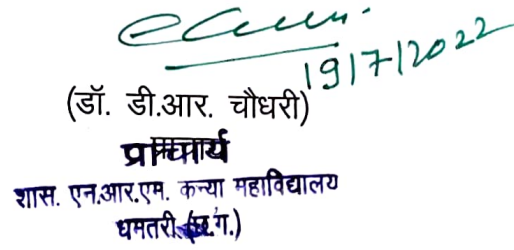 19/7/2022
(डॉ. डी.आर. चौधरी)
प्राचार्य
शास. एन.आर.एम. कन्या महाविद्यालय
धमतरी (छ.ग.)